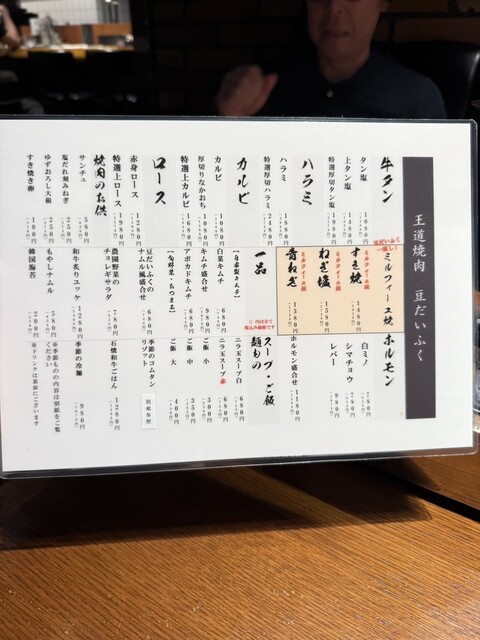 王道焼肉 豆だいふく
牛タン
タン塩 1080円
上タン塩
特選厚切タン塩 1980円
ハラミ
ハラミ 1880円
特選厚切ハラミ 2480円
カルビ
カルビ
厚切りなかおち 1080円
特選上カルビ 1680円
ロース
赤身ロース 1280円
特選上ロース 1980円
焼肉のお供
サンチュ 580円
塩だれ刻みねぎ 250円
ゆずおろし大根 250円
すき焼き卵 100円
豆だいふく
一推し!
ミルフィーユ焼
ミルフィーユ焼
すき焼 1480円
ミルフィーユ焼
ねぎ塩 1580円
ミルフィーユ焼
青ねぎ 1580円
一品
内は全て
税込み価格です
【自家製キムチ】
白菜キムチ 680円
キムチ盛合せ 980円
アボカドキムチ 680円
【旬野菜・おつまみ】
豆だいふくの
ナムル風盛合せ 680円
農園野菜の
チョレギサラダ 780円
和牛炙りユッケ 1280円
もやしナムル
韓国海苔 200円
ホルモン
白ミノ 780円
シマチョウ 780円
レバー 980円
ホルモン盛合せ 1180円
スープ・ご飯
麺もの
ニラ玉スープ 白
ニラ玉スープ 赤
ご飯 小 300円
ご飯 中 350円
ご飯 大 400円
季節のコムタン
リゾット 別紙参照
石焼和牛ごはん 1280円
季節の冷麺 980円
※季節ものの内容は別紙をご覧
ください
※ドリンクは裏面にございます